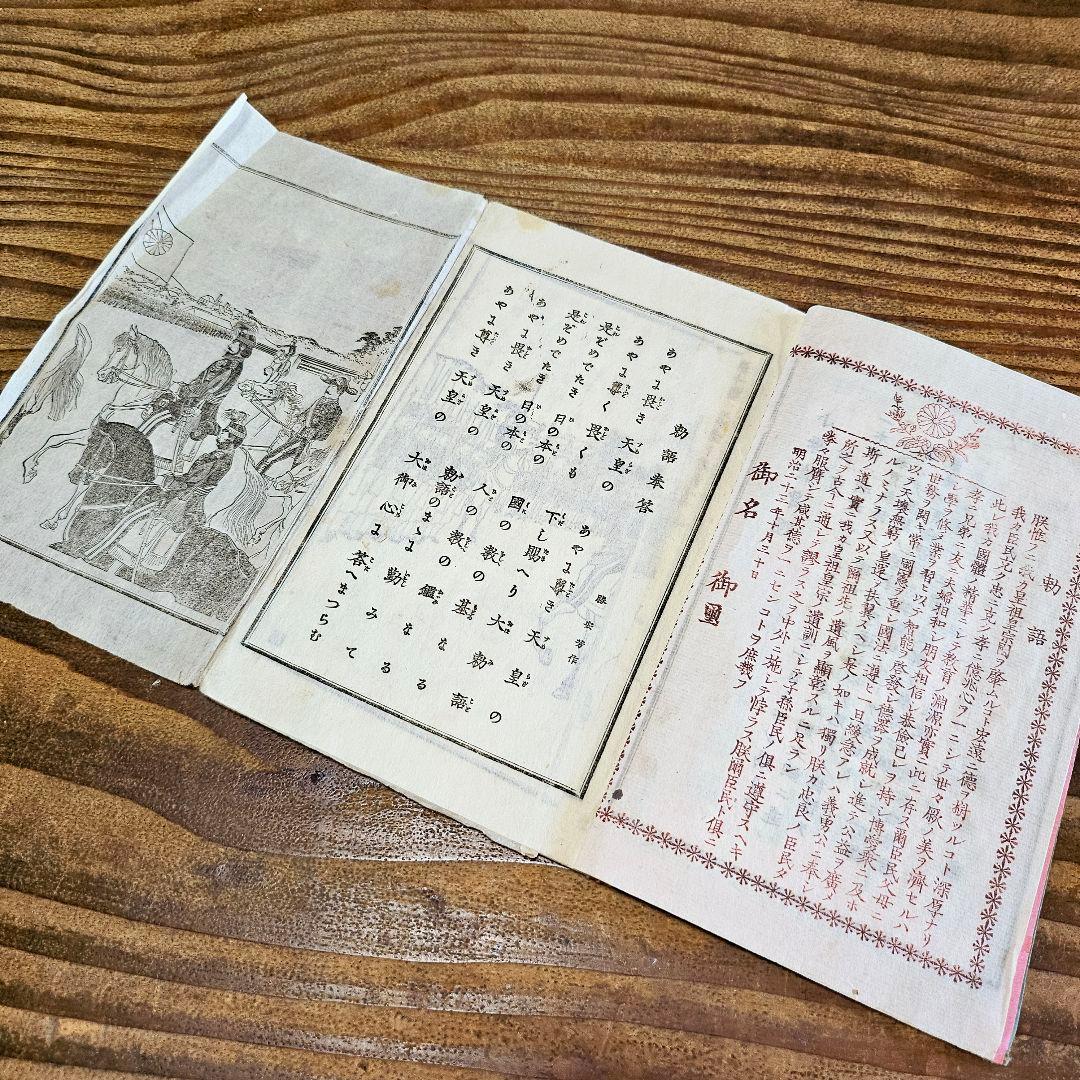 勅語
朕惟フニ我カ皇祖皇宗國ヲ肇ムルコト宏遠ニ德ヲ樹ツルコト深厚ナリ
我カ臣民克ク忠ニ克ク孝ニ億兆心ヲ一ニシテ世々厥ノ美ヲ濟セルハ
此レ我カ國體ノ精華ニシテ教育ノ淵源亦實ニ此ニ存ス爾臣民父母ニ
孝ニ兄弟ニ友ニ夫婦相和シ朋友相信シ恭儉己レヲ持シ博愛衆ニ及ホ
シ學ヲ修メ業ヲ習ヒ以テ智能ヲ啓發シ德器ヲ成就シ進テ公益ヲ廣メ
世務ヲ開キ常ニ國憲ヲ重シ國法ニ遵ヒ一旦緩急アレハ義勇公ニ奉シ
以テ天壤無窮ノ皇運ヲ扶翼スヘシ是ノ如キハ獨リ朕カ忠良ノ臣民タ
ルノミナラス又以テ爾祖先ノ遺風ヲ顯彰スルニ足ラン
斯ノ道ハ實ニ我カ皇祖皇宗ノ遺訓ニシテ子孫臣民ノ倶ニ遵守スヘキ
所之ヲ古今ニ通シテ謬ラス之ヲ中外ニ施シテ悖ラス朕爾臣民ト倶ニ
拳々服膺シテ咸其德ヲ一ニセンコトヲ庶幾フ
明治二十三年十月三十日
御名 御璽
勅語奉答
勝安芳作
あやに畏き 天皇の あやに尊き 天皇の
あやに尊く 畏くも 下し賜へり 大勅語
是ぞめでたき 日の本の 國の教の 基なる
是ぞめでたき 日の本の 人の教の 鑑なる
あやに畏き 天皇の 勅語のまゝに 勤みて
あやに尊き 天皇の 大御心に 答へまつらむ